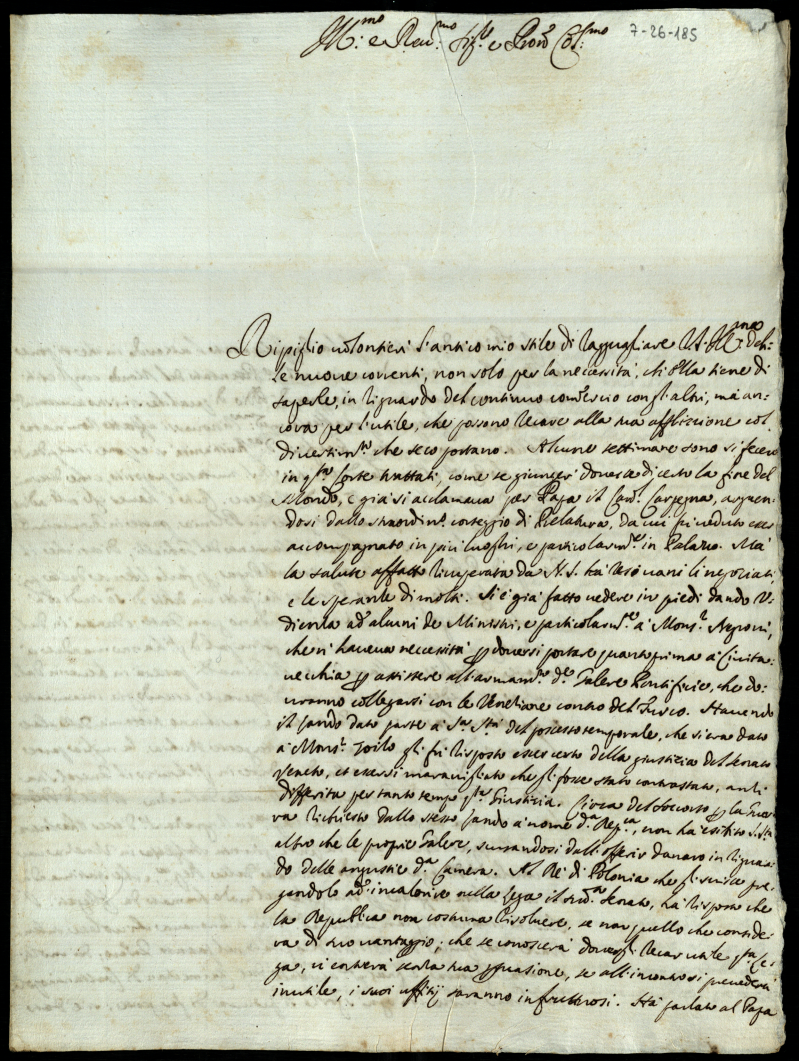 7-26-185
Ill.mo e Rev.mo Sig.re e Pron Col.mo
Ripiglio volontieri l'antico mio stile di ragguagliare V.S. Ill.ma del-
le nuove correnti, non solo per la necessità, ch'Ella tiene di
saperle, in riguardo del continuo comercio con gl'altri, mà an-
cora per l'utile, che possono recare alla sua afflizione col
divertim.to che seco portano. Alcune settimane sono si fecero
in q.sta Corte trattati, come se giunger dovesse di certo la fine del
Mondo, e già si acclamava per Papa il Car. Carpegna, arguen-
dosi dallo straordin.o corteggio di Prelatura, da cui fù veduto esser
accompagnato in più luoghi, e particolarm.te in Palazzo. Mà
la salute affatto ricuperata da N.S. hà resi vani li negoziati,
e le speranze di molti. Si è già fatto vedere in piedi dando V-
dienza ad'alcuni de Ministri, e particolarm.te à Mons.r Negroni,
che n'haveva necessità p doversi portare quanto prima à Civita-
vecchia p assistere all'armam.to d.e Galere Pontificie, che do-
vranno collegarsi con le Venetiane contro del Turco. Havendo
il Sando dato parte à S.a S.tà del possesso temporale, che si era dato
à Mons.r gli fù risposto esser certo della giustizia del Senato
Veneto, et essersi maravigliato che gli fosse stato contrastato, anzi
differita per tanto tempo q.sta Giustizia. Circa del soccorso p la Guer-
ra richiesto dallo stesso Sando à nome d.a Rep.ca, non hà esibito S. S.tà
altro che le proprie Galere, scusandosi dall'offerir danaro in riguar-
do delle angustie d.a Camera. Al Rè di Polonia che gli scrisse pre-
gandolo ad' nella Lega il sud.o Senato, hà risposto che
la Republica non costuma risolvere, se non quello che conside-
ra di suo vantaggio; che se conoscerà doverli recar utile q.sta Le-
ga, vi entrerà senza sua psuasione, se all'incontro si prevederà
inutile, i suoi uffitij saranno infruttuosi. Hà parlato al Papa